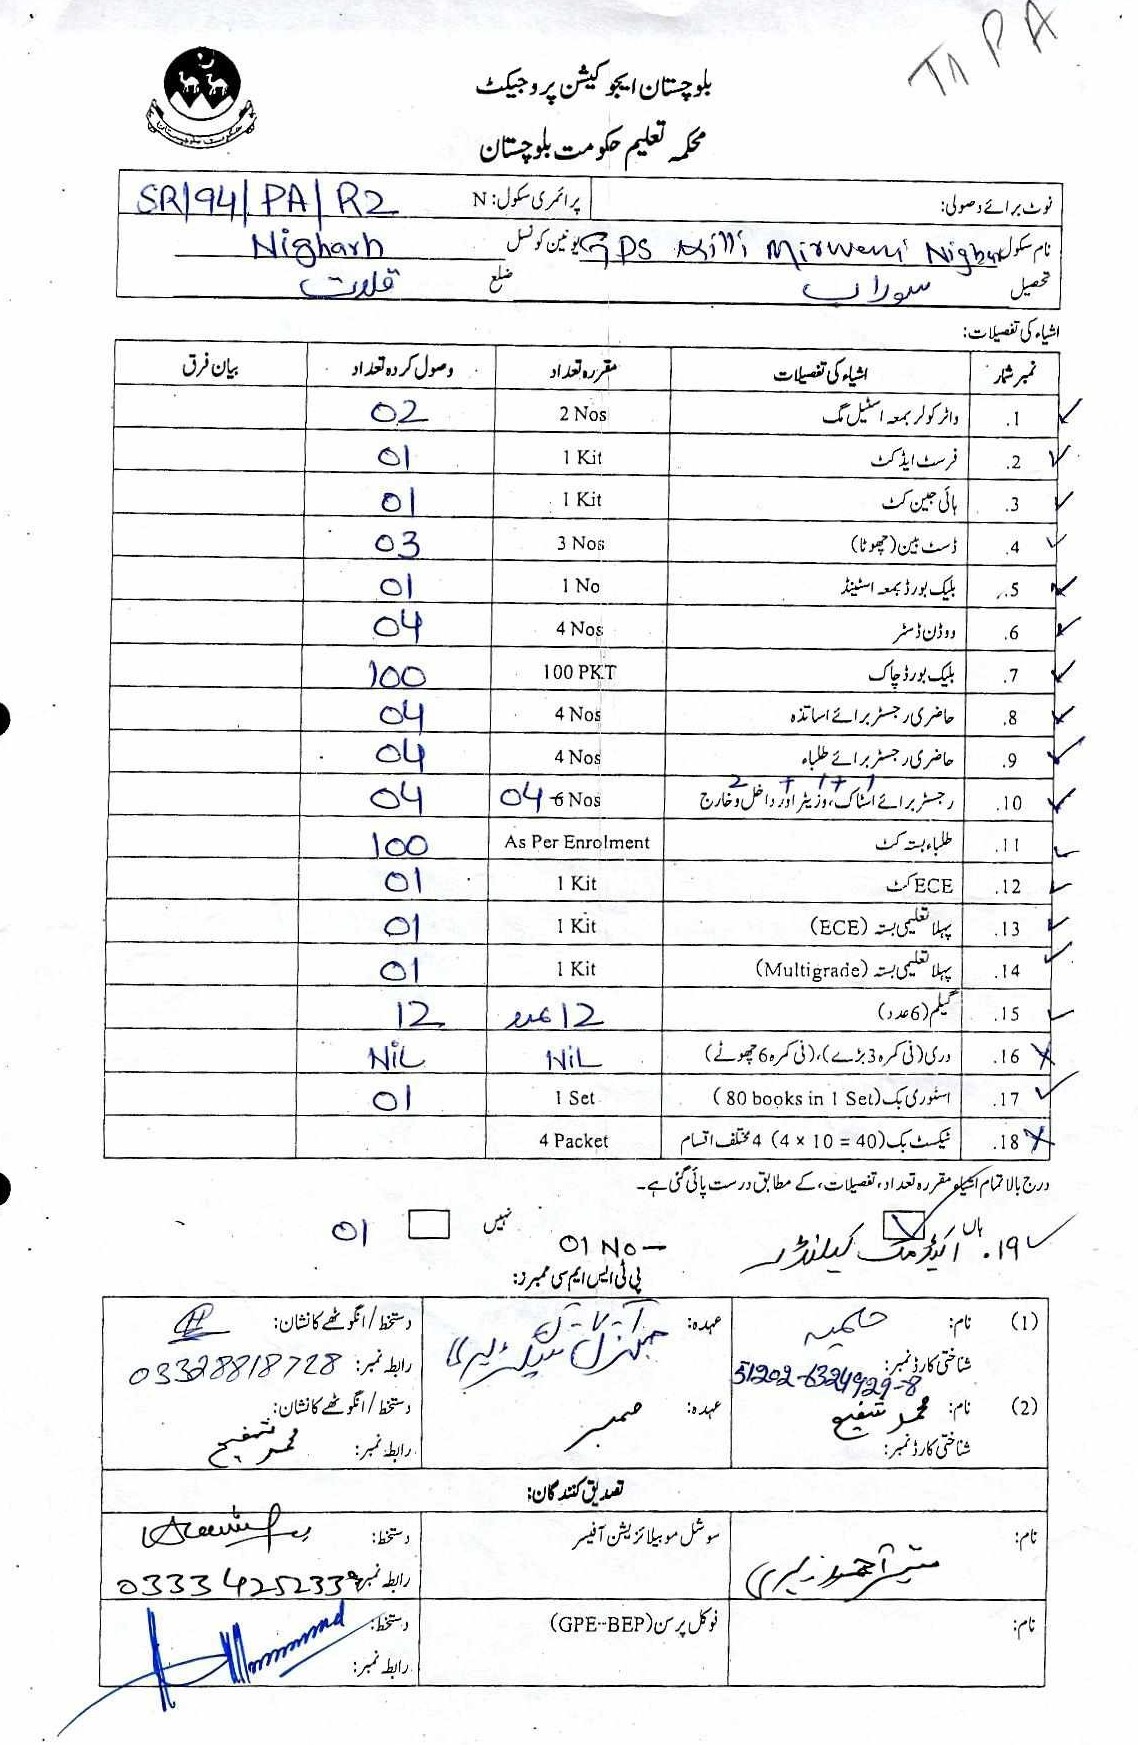 TA PA
بلوچستان ایجوکیشن پروجیکٹ
محکمہ تعلیم حکومت بلوچستان
نوٹ برائے دصولی: پرائمری سکول: N SR/94/PA/R2
نام سکول GPS Killi Mirweni Nighar یونین کونسل Nigharh
تحصیل سوراب ضلع قلات
اشیاء کی تفصیلات:
نمبر شمار اشیاء کی تفصیلات مقررہ تعداد وصول کردہ تعداد بیان فرق
1. واٹر کولر بمعہ اسٹیل مگ 2 Nos 02
2. فرسٹ ایڈ کٹ 1 Kit 01
3. ہائی جین کٹ 1 Kit 01
4. ڈسٹ بین (چھوٹا) 3 Nos 03
5. بلیک بورڈ بمعہ اسٹینڈ 1 No 01
6. ووڈن ڈسٹر 4 Nos 04
7. بلیک بورڈ چاک 100 PKT 100
8. حاضری رجسٹر برائے اساتذہ 4 Nos 04
9. حاضری رجسٹر برائے طلباء 4 Nos 04
2 + 1 + 1
10. رجسٹر برائے اسٹاک، وزیٹر اور داخل و خارج 04 6 Nos 04
11. طلباء بستہ کٹ As Per Enrolment 100
12. ECE کٹ 1 Kit 01
13. پہلا تعلیمی بستہ (ECE) 1 Kit 01
14. پہلا تعلیمی بستہ (Multigrade) 1 Kit 01
15. گیلم (6 عدد) 12 عدد 12
16. دری (فی کمرہ 3 بڑے)، (فی کمرہ 6 چھوٹے) NiL NiL
17. اسٹوری بک (80 books in 1 Set) 1 Set 01
18. ٹیکسٹ بک (4 x 10 = 40) 4 مختلف اقسام 4 Packet
درج بالا تمام اشیاء مقررہ تعداد، تفصیلات، کے مطابق درست پائی گئی ہے۔
ہاں نہیں
۱۹. اکیڈمک کیلنڈر 01 No 01
پی ٹی ایس ایم سی ممبرز:
(1) نام: حلمیہ عہدہ: جنرل سیکرٹیری دستخط/انگوٹھے کا نشان:
شناختی کارڈ نمبر: 51202-6324929-8 رابطہ نمبر: 03328818728
(2) نام: محمد شفیع عہدہ: ممبر دستخط/انگوٹھے کا نشان:
شناختی کارڈ نمبر: رابطہ نمبر: محمد شفیع
تصدیق کنندگان:
نام: سوشل موبیلائزیشن آفیسر دستخط:
رابطہ نمبر 03334252339
نام: فوکل پرسن (GPE-BEP) دستخط:
رابطہ نمبر: